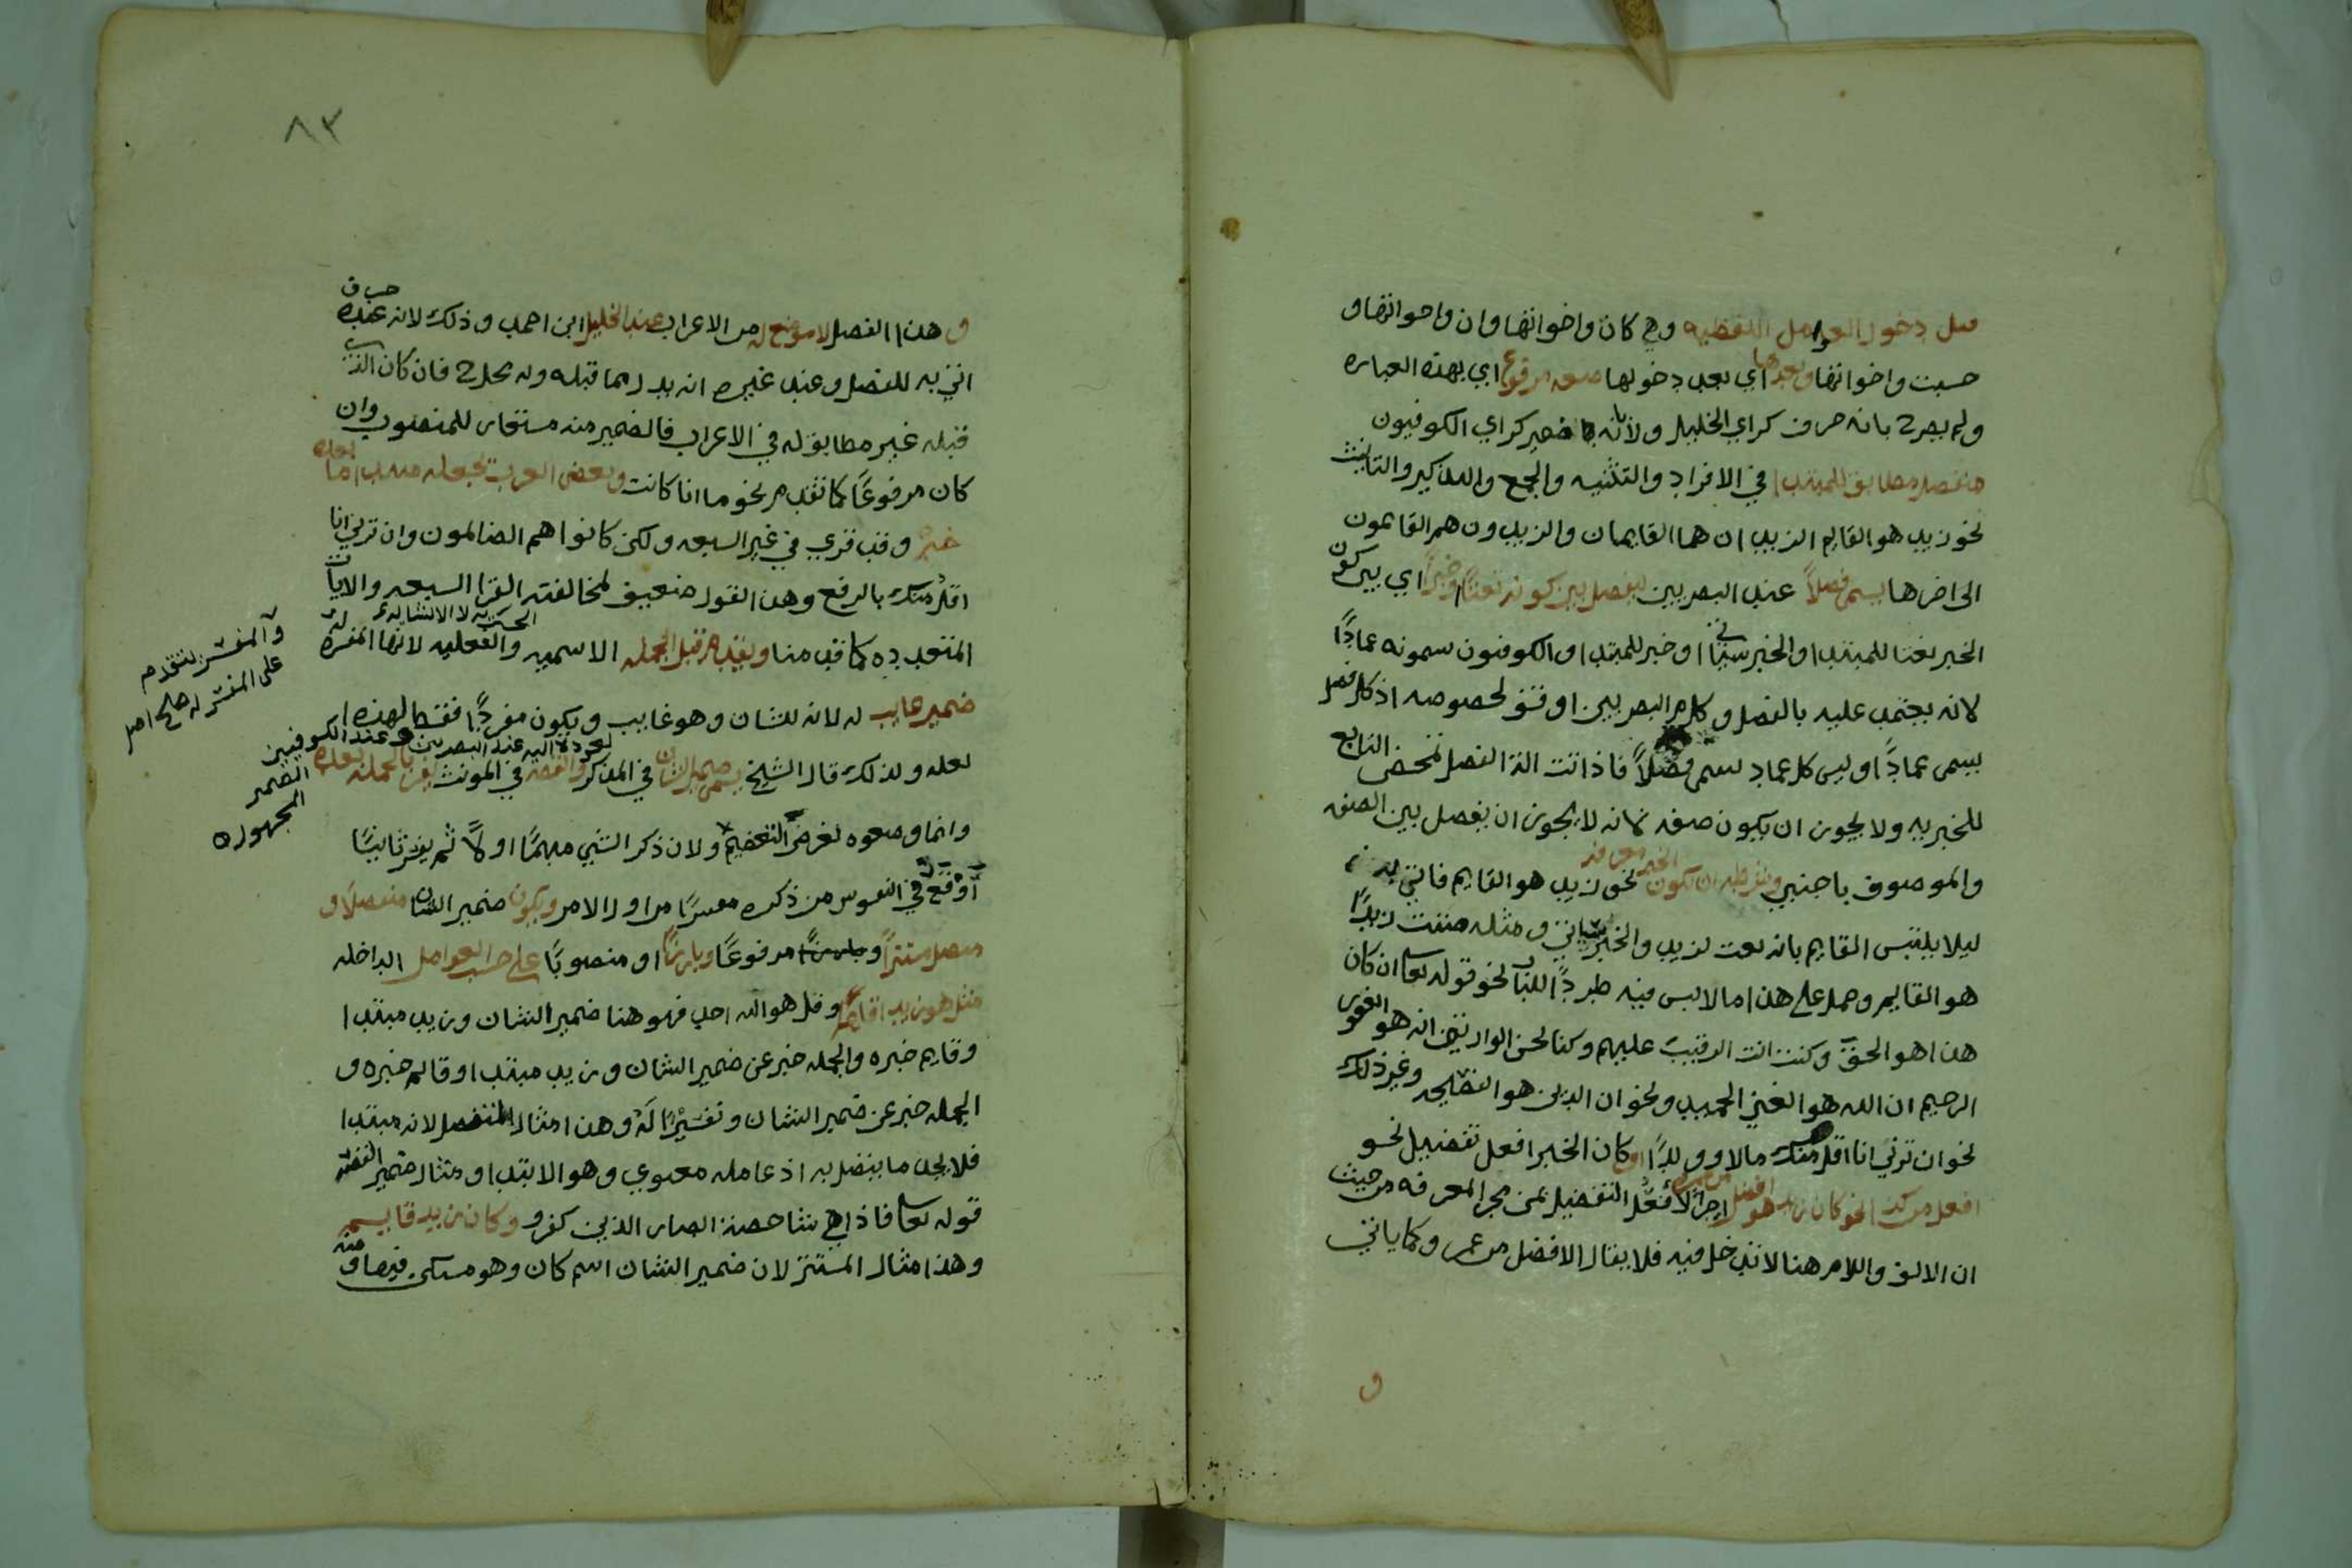 قبل دخول العوامل اللفظيه وهي كان واخواتها وان واخواتها و
حسبت واخواتها وبعدها اي بعد دخولها صيغه مرفوع اي بهذه العباره
ولم يصرح بانه حرف كراي الخليل ولا بانه ضمير كراي الكوفيون
منفصل مطابق للمبتدا في الافراد والتثنيه والجمع والتذكير والتانيث
نحو زيد هو القايم الزيدان هما القايمان والزيدون هم القايمون
الى اخرها يسمى فصلاً عند البصريين ليفصل بين كونه نعتاً وخبراً اي بين كون
الخبر نعتا للمبتدا والخبر سياتي او خبر للمبتدا والكوفيون يسمونه عمادًا
لانه يعتمد عليه بالفصل وكلام البصريين اوفق لخصوصه اذ كل فصل
يسمى عمادًا وليس كل عماد يسمى فصلاً فاذا انت الفصل تمحض التابع
للخبريه ولا يجوز ان يكون صفه لانه لا يجوز ان يفصل بين الصفه
والموصوف باجنبي وشرطه ان يكون الخبر معرفه نحو زيد هو القايم فاتي به
ليلا يلتبس القايم بانه نعت لزيد والخبر سياتي ومثله ظننت زيدًا
هو القايم وحمل على هذا ما لا لبس فيه طردًا للباب نحو قوله تعالى ان كان
هذا هو الحق وكنت انت الرقيب عليهم وكنا نحن الوارثين انه هو الغفور
الرحيم ان الله هو الغني الحميد ونحو ان الدين هو النصيحه وغير ذلك
نحو ان ترني انا اقل منك مالا وولدًا او كان الخبر افعل تفضيل نحو
افعل من كذا نحو كان زيد هو افضل من عمرو اجراءً لافعل التفضيل بمن مجرا المعرفه من حيث
ان الالف واللام هنا لا تدخل فيه فلا يقال الافضل من عمرو كما ياتي
و
٨٣
وهذا الفصل لا موضع له من الاعراب عند الخليل ابن احمد وذلك لانه عنده حرف
اتي به للفصل وعند غيره انه بدل مما قبله وله محل فان كان الذي
قبله غير مطابق له في الاعراب فالضمير منه مستعار للمنصوب وان
كان مرفوعًا كما تقدم نحو ما انا كانت وبعض العرب يجعله مبتدا ما بعده
خبره وقد قري في غير السبعه ولكن كانوا هم الظالمون وان ترني انا
اقل منك بالرفع وهذا القول ضعيف لمخالفته القرا السبعه والايات
المتعدده كما قدمنا ويتقدم قبل الجمله الاسميه والفعليه لانها المفسره له
الخبريه لا الانشاييه
ضمير غايب له لانه للشان وهو غايب ويكون مفردًا فقط لهذه ا
لعوده اليه عند البصريين وعند الكوفيين
لعله ولذلك قال الشيخ يسمى ضمير الشان في المذكر والقصه في المونث يفسر بالجمله بعده
الضمير
المجهول ه
وانما وضعوه لغرض التعظيم ولان ذكر الشي مبهمًا اولاً ثم يفسر ثانيًا
اوقع في النفوس من ذكره مفسرًا من اول الامر ويكون ضمير الشان منفصلاً و
متصلا مستترًا وبارزًا مرفوعًا وبارزًا او منصوبًا على حسب العوامل الداخله
مثل هو زيد قايم وقل هو الله احد فهو هنا ضمير الشان وزيد مبتدا
وقايم خبره والجمله خبر عن ضمير الشان وزيد مبتدا وقايم خبره و
الجمله خبر عن ضمير الشان وتفسيرًا له وهذا مثال المنفصل لانه مبتدا
فلا يجد ما يتصل به اذ عامله معنوي وهو الابتدا ومثال ضمير القصه
قوله تعالى فاذا هي شاخصة ابصار الذين كفرو وكان زيد قايم
وهذا مثال المستتر لان ضمير الشان اسم كان وهو مستكن فيها و منه
وآلمفسر لتقدم
على المفسر له صلح اصل